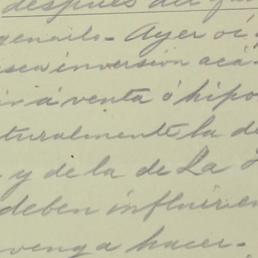 después del
Ayer oí
inversión acá
á venta ó hipo
turalmente la de
y de la de La
deben influir en
venga a hacer.